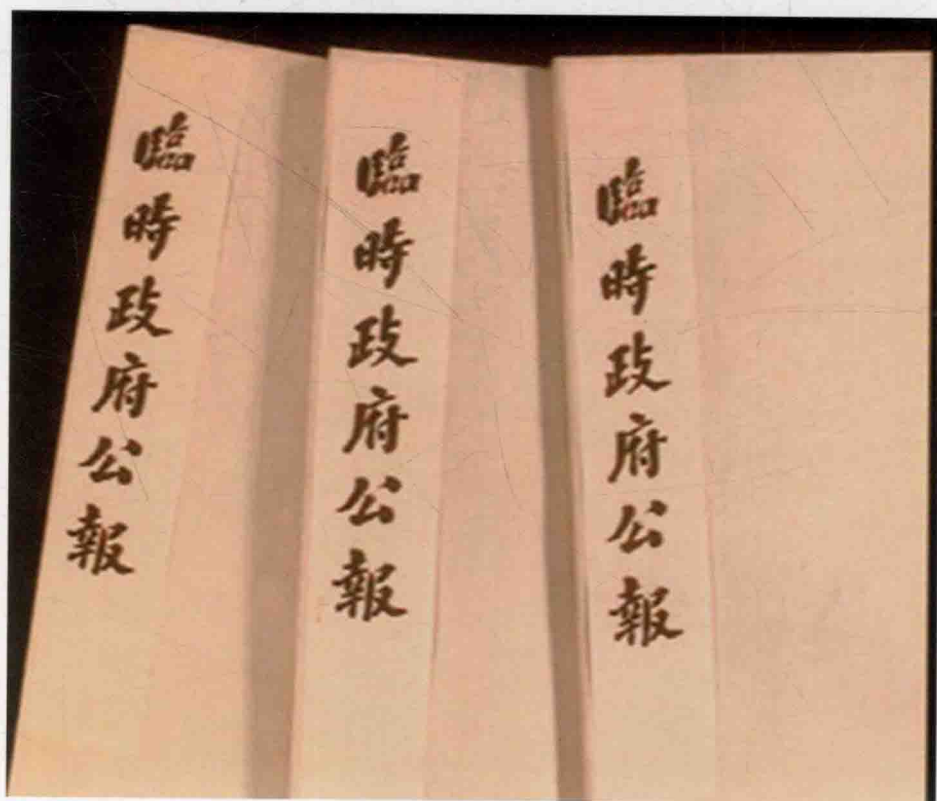 臨時政府公報
臨時政府公報
臨時政府公報